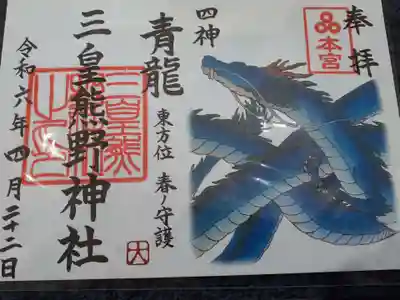 奉拝
本宮
四神
青龍
東方位 春ノ守護
三皇熊野神社
令和六年四月二十二日